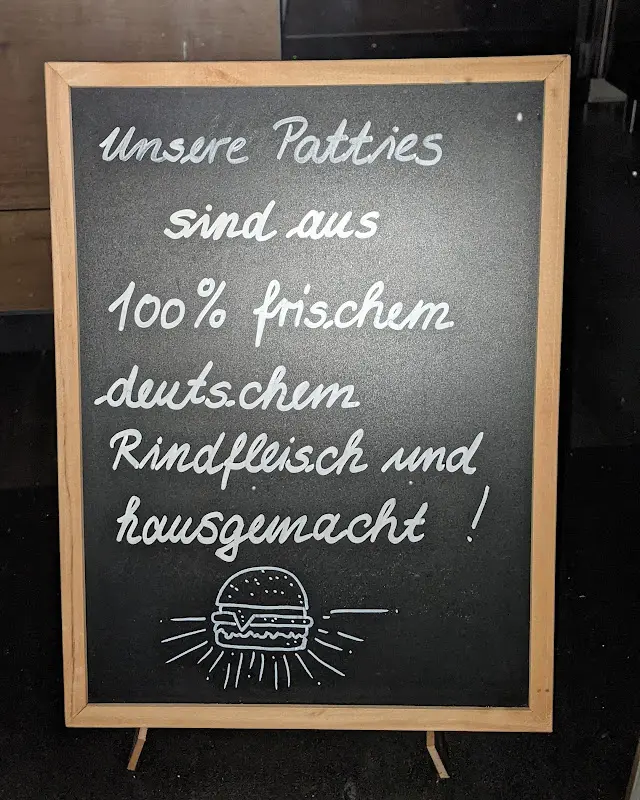 Unsere Patties
sind aus
100% frischem
deutschem
Rindfleisch und
hausgemacht !